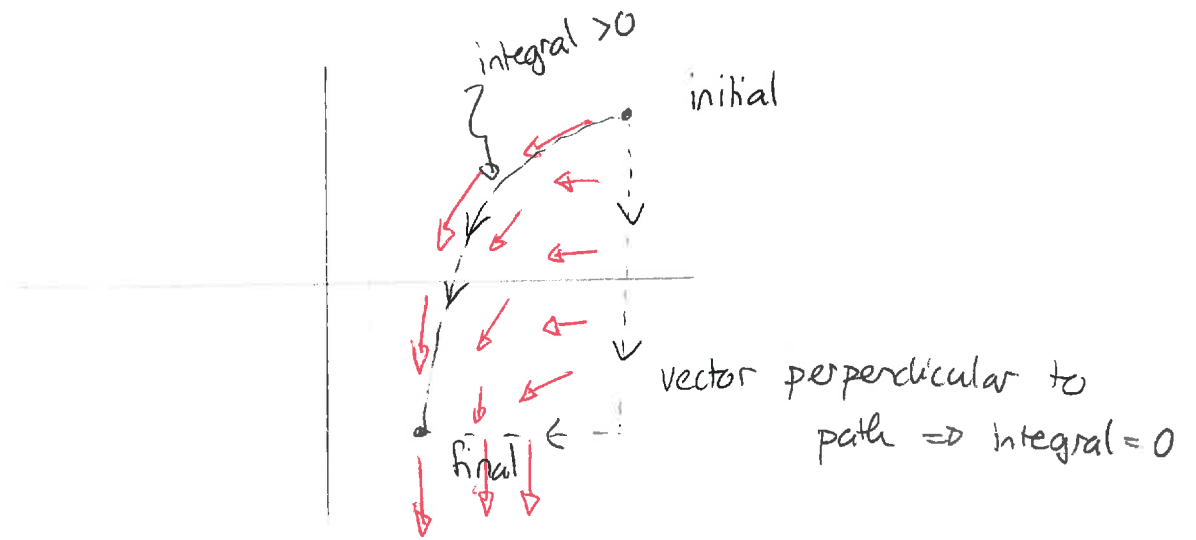 integral >0
initial
final
vector perpendicular to
path => integral = 0